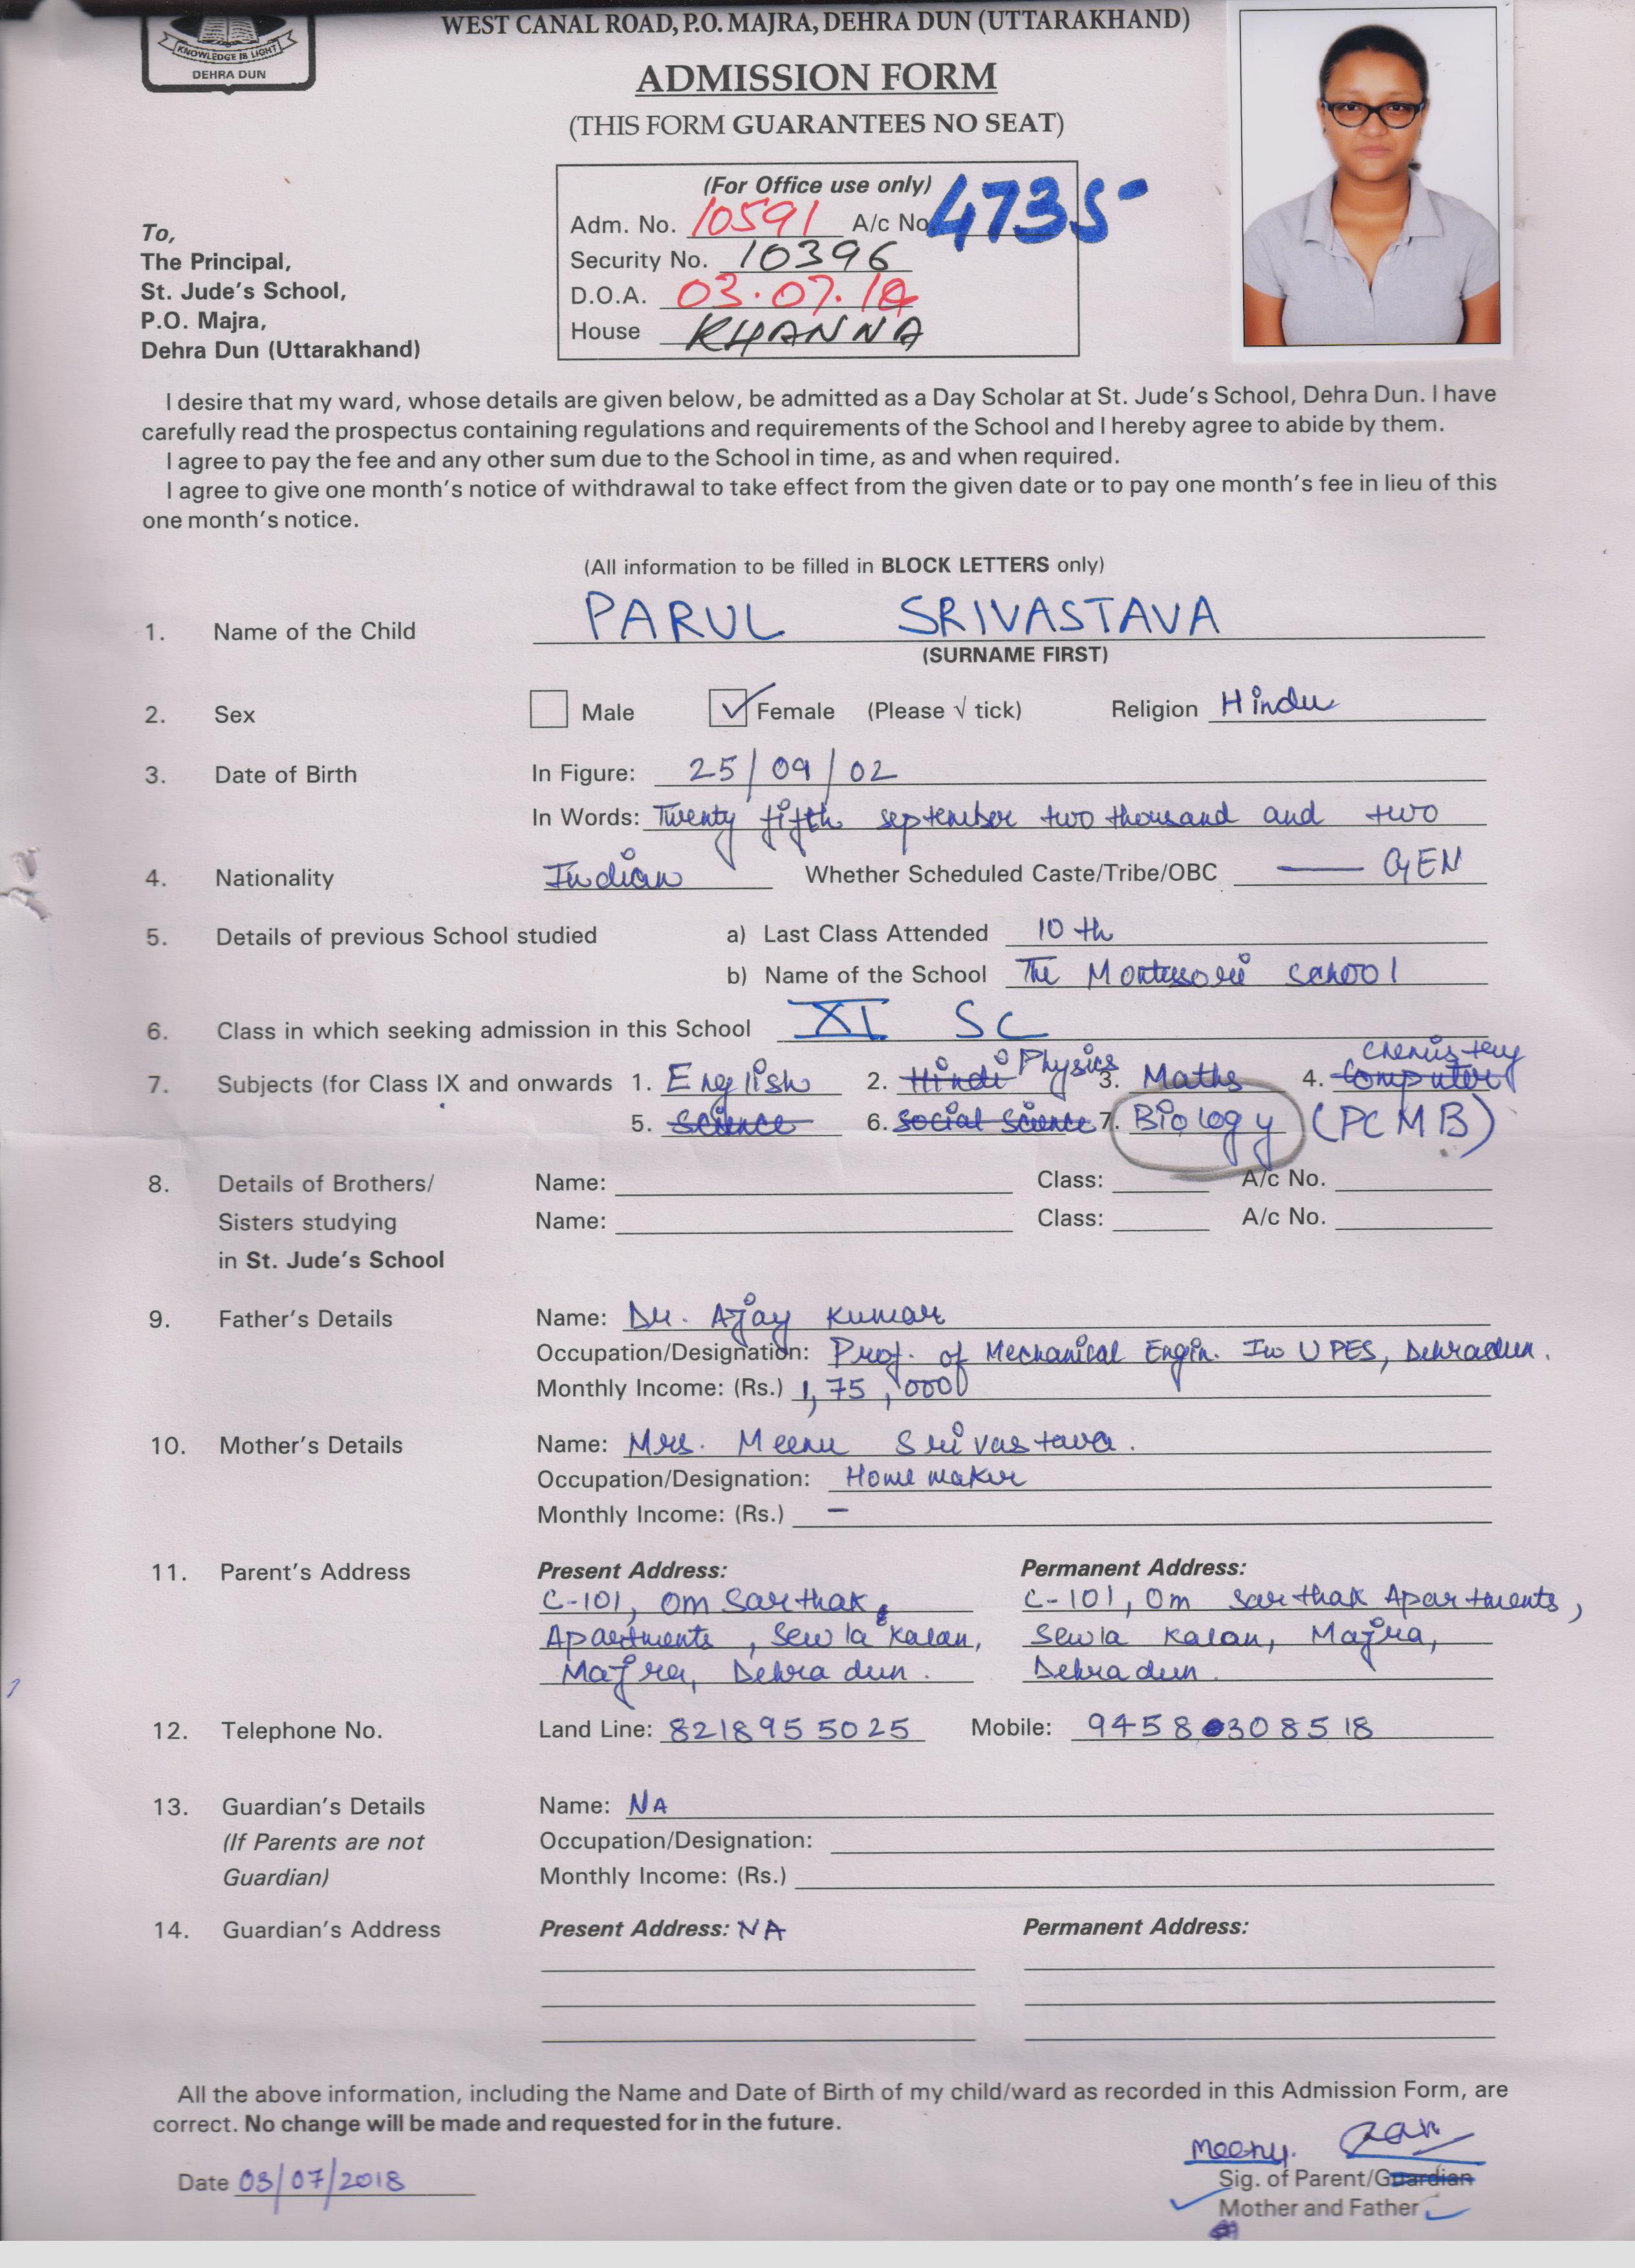 WEST CANAL ROAD, P.O. MAJRA, DEHRA DUN (UTTARAKHAND)
KNOWLEDGE IS LIGHT
DEHRA DUN
ADMISSION FORM
(THIS FORM GUARANTEES NO SEAT)
(For Office use only)
Adm. No. 10591 A/c No 4735
Security No. 10396
D.O.A. 03.07.18
House KHANNA
To,
The Principal,
St. Jude's School,
P.O. Majra,
Dehra Dun (Uttarakhand)
I desire that my ward, whose details are given below, be admitted as a Day Scholar at St. Jude's School, Dehra Dun. I have
carefully read the prospectus containing regulations and requirements of the School and I hereby agree to abide by them.
I agree to pay the fee and any other sum due to the School in time, as and when required.
I agree to give one month's notice of withdrawal to take effect from the given date or to pay one month's fee in lieu of this
one month's notice.
(All information to be filled in BLOCK LETTERS only)
1. Name of the Child PARUL SRIVASTAVA
(SURNAME FIRST)
2. Sex Male ✓ Female (Please √ tick) Religion Hindu
3. Date of Birth In Figure: 25/09/02
In Words: Twenty fifth september two thousand and two
4. Nationality Indian Whether Scheduled Caste/Tribe/OBC — GEN
5. Details of previous School studied a) Last Class Attended 10 th
b) Name of the School The Montessori school
6. Class in which seeking admission in this School XI SC
7. Subjects (for Class IX and onwards 1. English 2. Hindi Physics 3. Maths 4. Computer Chemistery
5. Science 6. Social Science 7. Biology (PCMB)
8. Details of Brothers/ Name: Class: A/c No.
Sisters studying Name: Class: A/c No.
in St. Jude's School
9. Father's Details Name: Dr. Ajay Kumar
Occupation/Designation: Prof. of Mechanical Engin. In UPES, Dehradun.
Monthly Income: (Rs.) 1,75,000
10. Mother's Details Name: Mrs. Meenu Srivastava.
Occupation/Designation: Home maker
Monthly Income: (Rs.) –
11. Parent's Address Present Address: Permanent Address:
C-101, Om Sarthak, C-101, Om Sarthak Apartments,
Apartments, Sewla Kalan, Sewla Kalan, Majra,
Majra, Dehra dun. Dehra dun.
12. Telephone No. Land Line: 8218955025 Mobile: 9458308518
13. Guardian's Details Name: NA
(If Parents are not Occupation/Designation:
Guardian) Monthly Income: (Rs.)
14. Guardian's Address Present Address: NA Permanent Address:
All the above information, including the Name and Date of Birth of my child/ward as recorded in this Admission Form, are
correct. No change will be made and requested for in the future.
Meenu.
Date 03/07/2018 Sig. of Parent/Guardian
Mother and Father